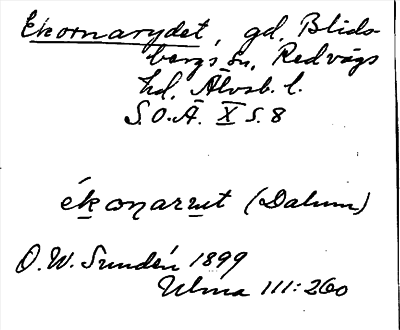 Ekornarydet, gd, Blids-
bergs sn, Redvägs
hd, Älvsb. l.
S.O.Ä. X s. 8
ékoṇarrut (Dalum)
O.W. Sundén 1899
Ulma 111:260